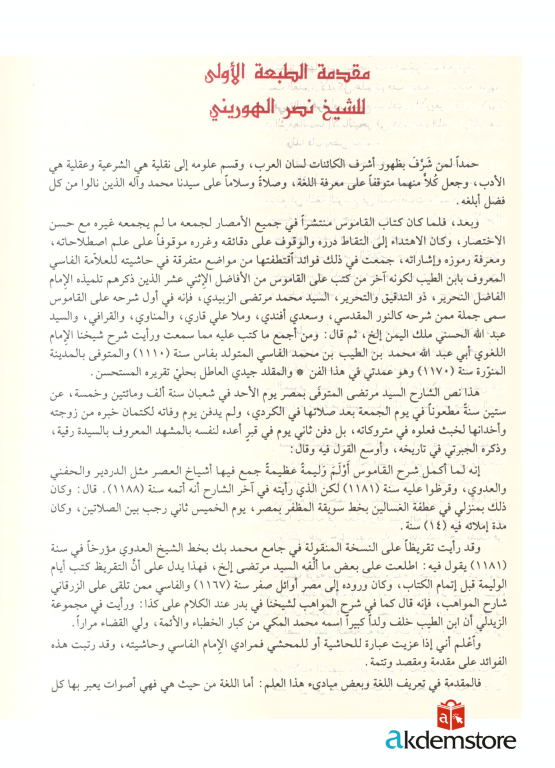 مقدمة الطبعة الأولى
للشيخ نصر الهوريني
حمداً لمن شَرَّفَ بظهور أشرف الكائنات لسان العرب، وقسم علومه إلى نقلية هي الشرعية وعقلية هي
الأدب، وجعل كُلاًّ منهما متوقفاً على معرفة اللغة، وصلاةً وسلاماً على سيدنا محمد وآله الذين نالوا من كل
فضل أبلغه.
وبعد، فلما كان كتاب القاموس منتشراً في جميع الأمصار لجمعه ما لم يجمعه غيره مع حسن
الاختصار، وكان الاهتداء إلى التقاط درره والوقوف على دقائقه وغرره موقوفاً على علم اصطلاحاته،
ومعرفة رموزه وإشاراته، جمعت في ذلك فوائد اقتطفتها من مواضع متفرقة في حاشيته للعلاّمة الفاسي
المعروف بابن الطيب لكونه آخر من كتب على القاموس من الأفاضل الإثني عشر الذين ذكرهم تلميذه الإمام
الفاضل النحرير، ذو التدقيق والتحرير، السيد محمد مرتضى الزبيدي، فإنه في أول شرحه على القاموس
سمى جملة ممن شرحه كالنور المقدسي، وسعدي أفندي، وملا علي قاري، والمناوي، والقرافي، والسيد
عبد الله الحسني ملك اليمن إلخ، ثم قال: ومن أجمع ما كتب عليه مما سمعت ورأيت شرح شيخنا الإمام
اللغوي أبي عبد الله محمد بن الطيب بن محمد الفاسي المتولد بفاس سنة (١١١٠) والمتوفى بالمدينة
المنوّرة سنة (١١٧٠) وهو عمدتي في هذا الفن * والمقلد جيدي العاطل بحليّ تقريره المستحسن.
هذا نص الشارح السيد مرتضى المتوفى بمصر يوم الأحد في شعبان سنة ألف ومائتين وخمسة، عن
ستين سنةً مطعوناً في يوم الجمعة بعد صلاتها في الكردي، ولم يدفن يوم وفاته لكتمان خبره من زوجته
وأخدانها لخبث فعلوه في متروكاته، بل دفن ثاني يوم في قبرٍ أعده لنفسه بالمشهد المعروف بالسيدة رقية،
وذكره الجبرتي في تاريخه، وأوسع القول فيه وقال:
إنه لما أكمل شرح القاموس أَوْلَمَ وَليمةً عظيمةً جمع فيها أشياخ العصر مثل الدردير والحفني
والعدوي، وقرظوا عليه سنة (١١٨١) لكن الذي رأيته في آخر الشارح أنه أتمه سنة (١١٨٨). قال: وكان
ذلك بمنزلي في عطفة الغسالين بخط سويقة المظفر بمصر، يوم الخميس ثاني رجب بين الصلاتين، وكان
مدة إملائه فيه (١٤) سنة.
وقد رأيت تقريظاً على النسخة المنقولة في جامع محمد بك بخط الشيخ العدوي مؤرخاً في سنة
(١١٨١) يقول فيه: اطلعت على بعض ما ألّفه السيد مرتضى إلخ، فهذا يدل على أنّ التقريظ كتب أيام
الوليمة قبل إتمام الكتاب، وكان وروده إلى مصر أوائل صفر سنة (١١٦٧) والفاسي ممن تلقى على الزرقاني
شارح المواهب، فإنه قال كما في شرح المواهب لشيخنا في بدر عند الكلام على كذا: ورأيت في مجموعة
الزيدلي أن ابن الطيب خلف ولداً كبيراً اسمه محمد المكي من كبار الخطباء والأئمة، ولي القضاء مراراً.
وأعلم أني إذا عزيت عبارة للحاشية أو للمحشي فمرادي الإمام الفاسي وحاشيته، وقد رتبت هذه
الفوائد على مقدمة ومقصد وتتمة.
فالمقدمة في تعريف اللغة وبعض مبادىء هذا العلم: أما اللغة من حيث هي فهي أصوات يعبر بها كل
a
akdemstore